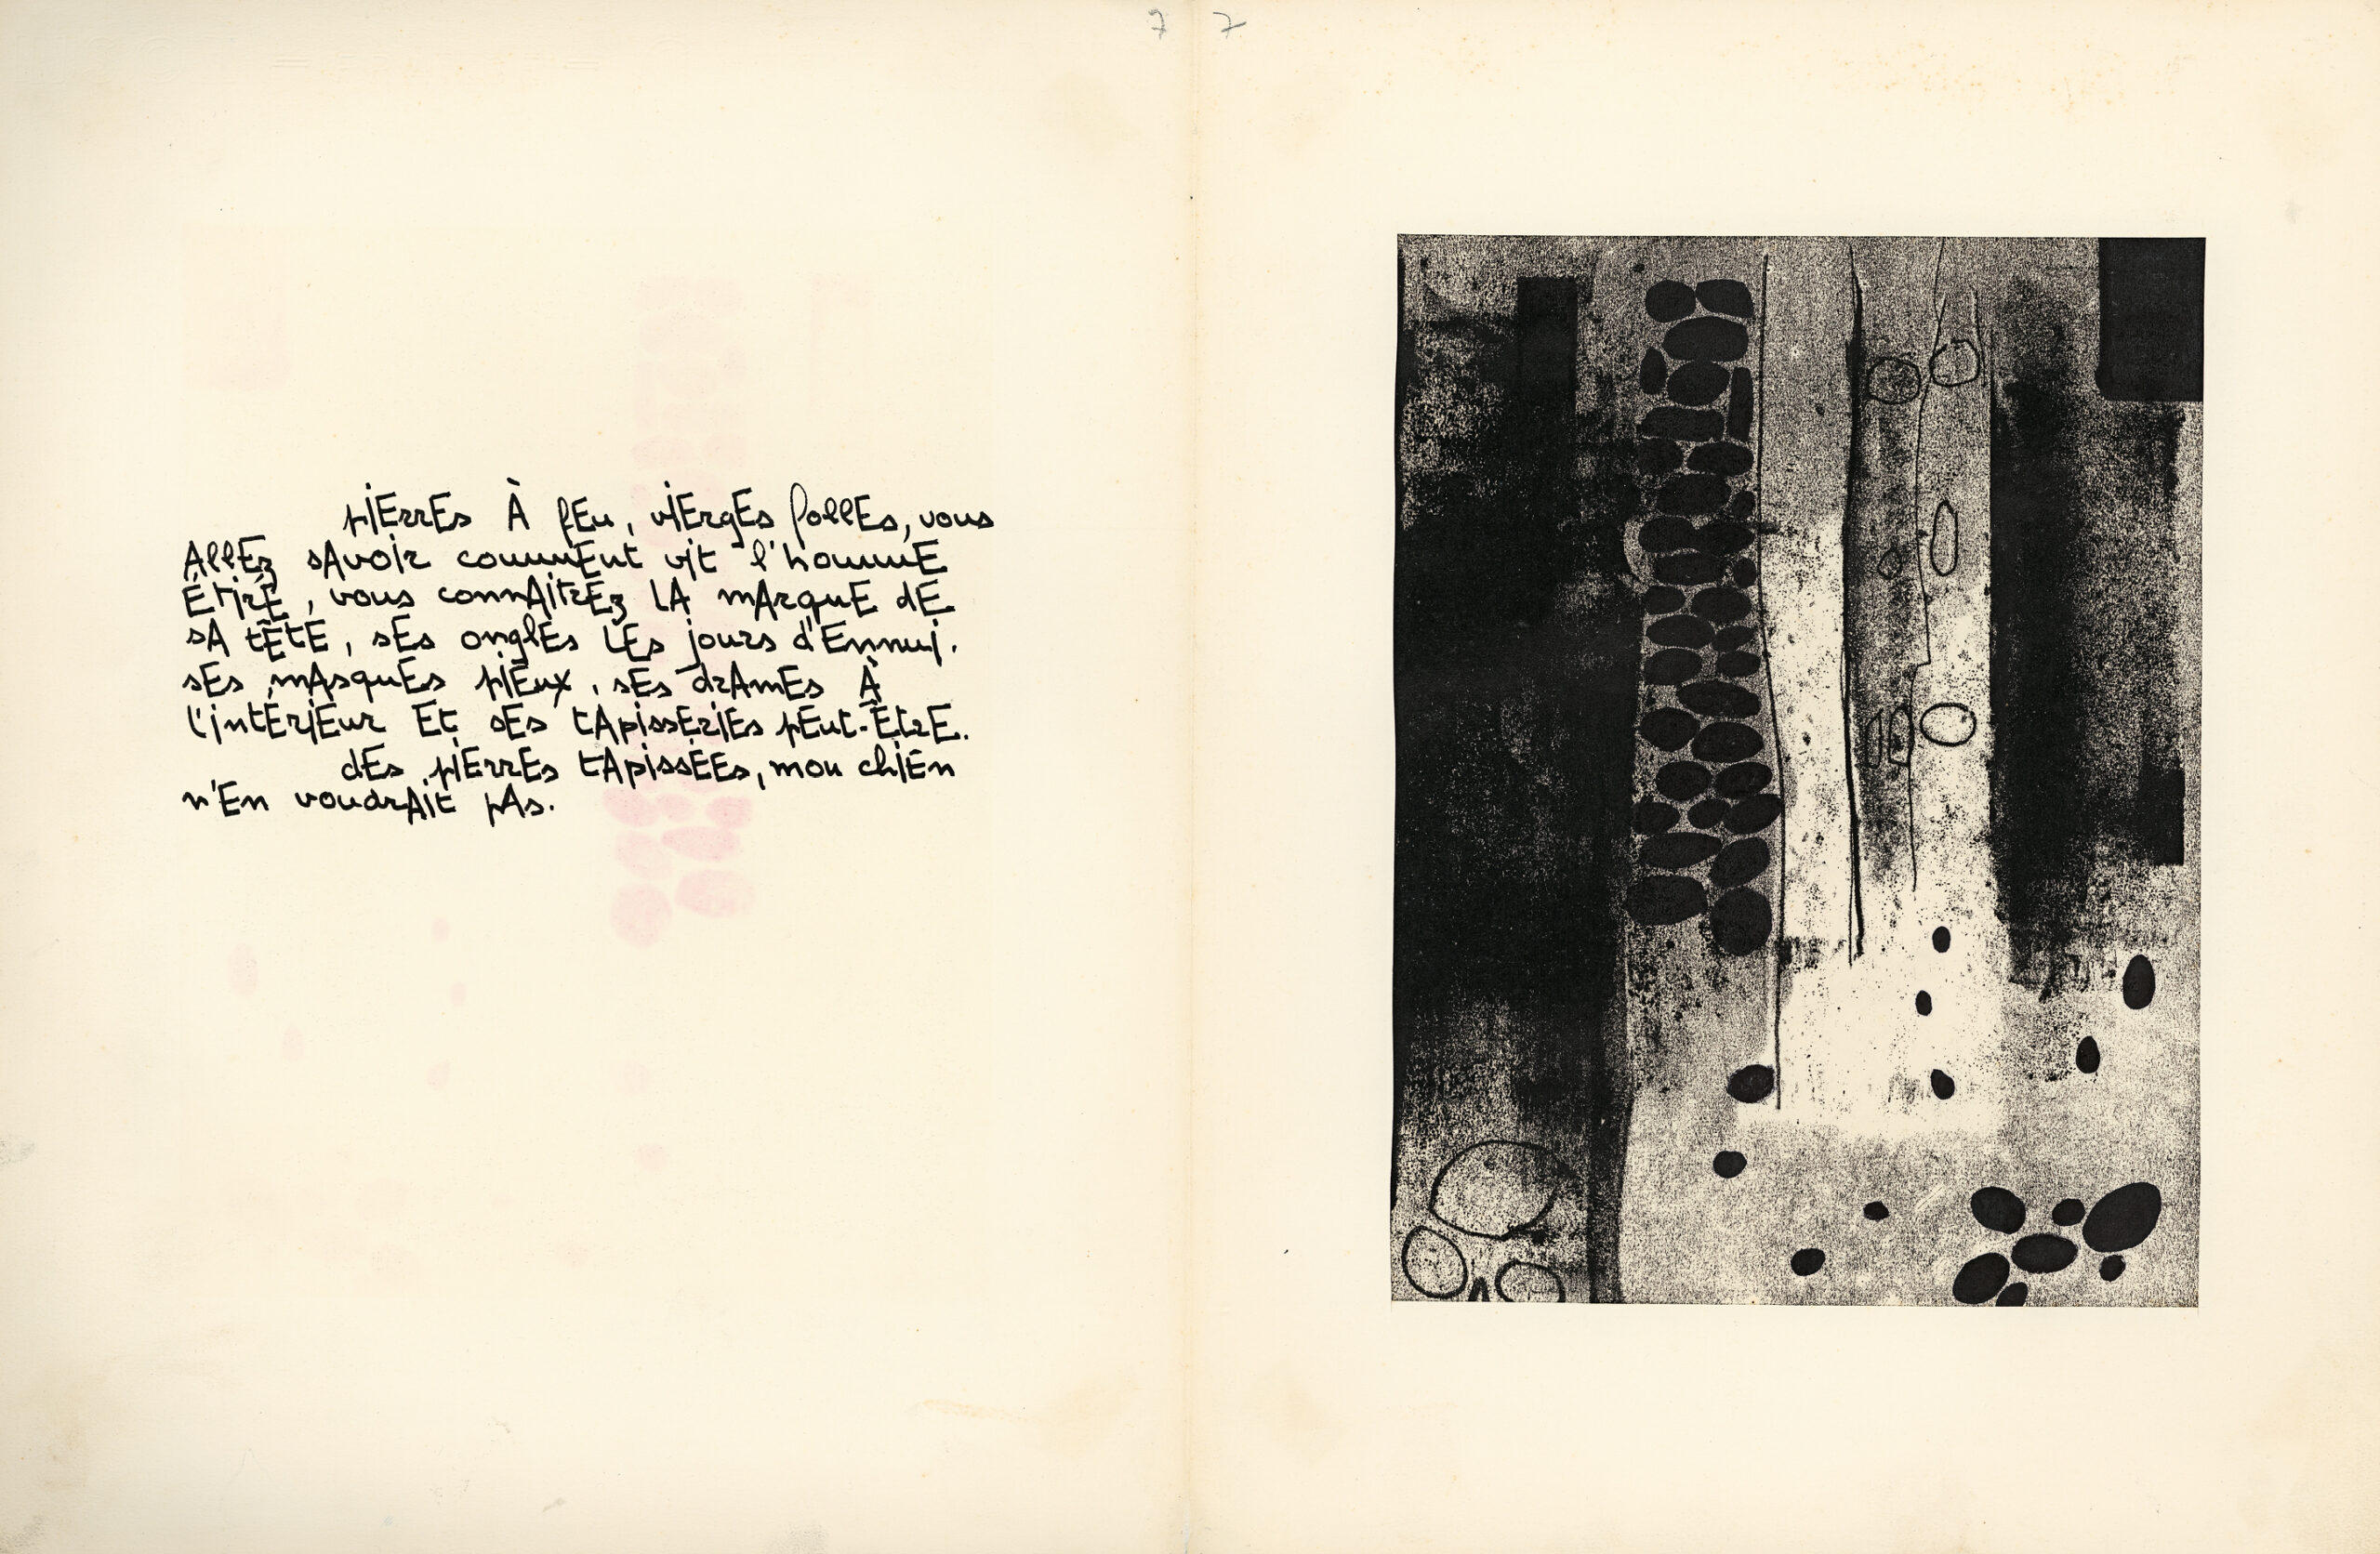 7 7
pierres à feu, vierges folles, vous
allez savoir comment vit l'homme
étiré, vous connaitrez la marque de
sa tête, ses ongles les jours d'ennui.
ses masques pieux, ses drames à
l'intérieur et ses tapisseries peut-être.
des pierres tapissées, mon chien
n'en voudrait pas.